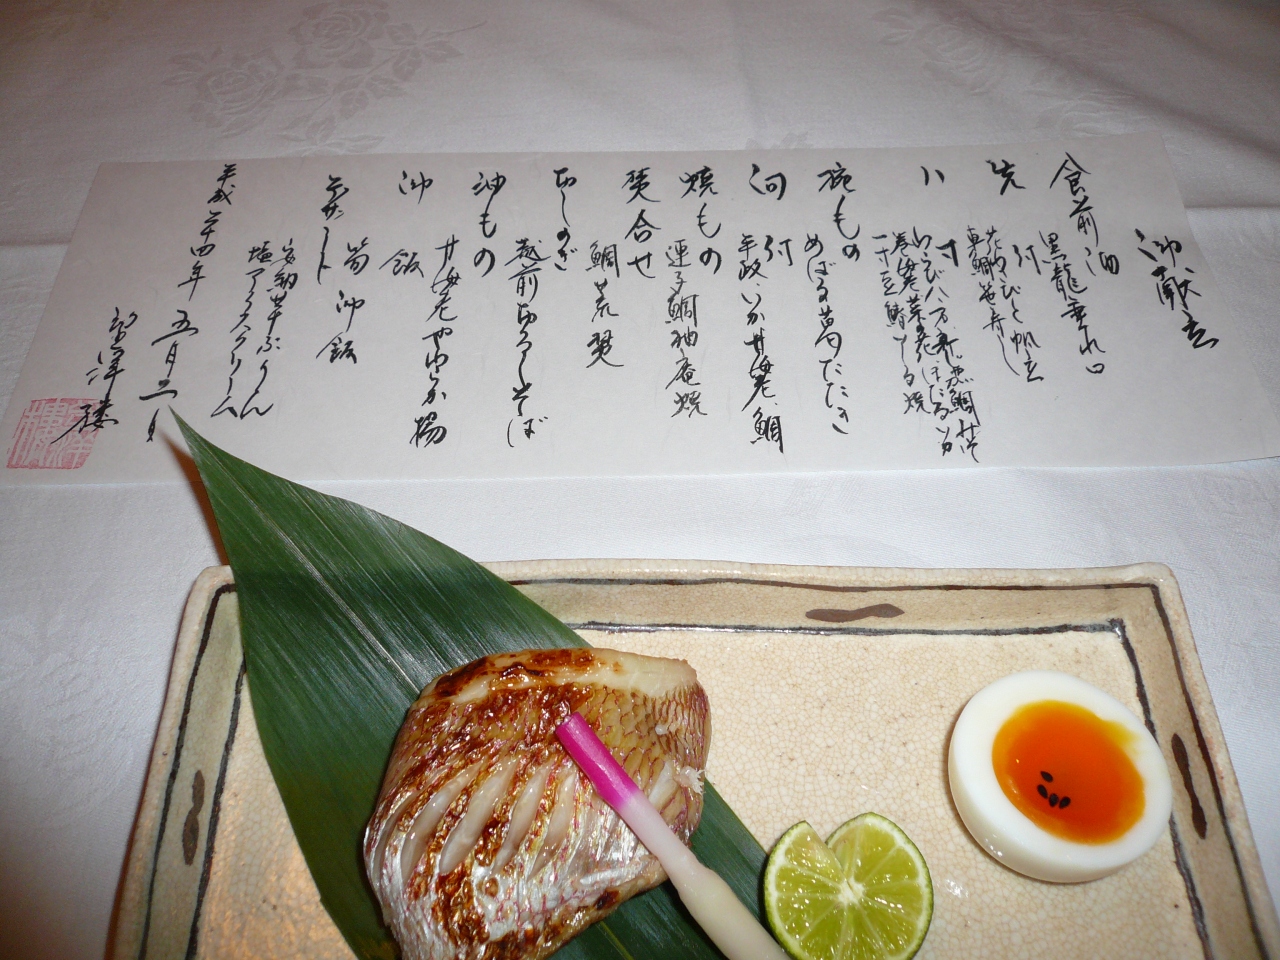 御献立
食前酒
黒龍垂れ口
先付
花わさびと帆立
車鯛笹寿し
八寸
わらび
巻海老菜の花ほたるいか
一寸豆
焼
椀もの
めばる葛たたき
向付
平政、いか甘海老、鯛
焼もの
連子鯛柚庵焼
焚合せ
鯛荒焚
おしのぎ
越前おろしそば
油もの
甘海老やわらか揚
御飯
筍御飯
デザート
安納芋ぷりん
塩アイスクリーム
平成二十四年五月二日
望洋楼